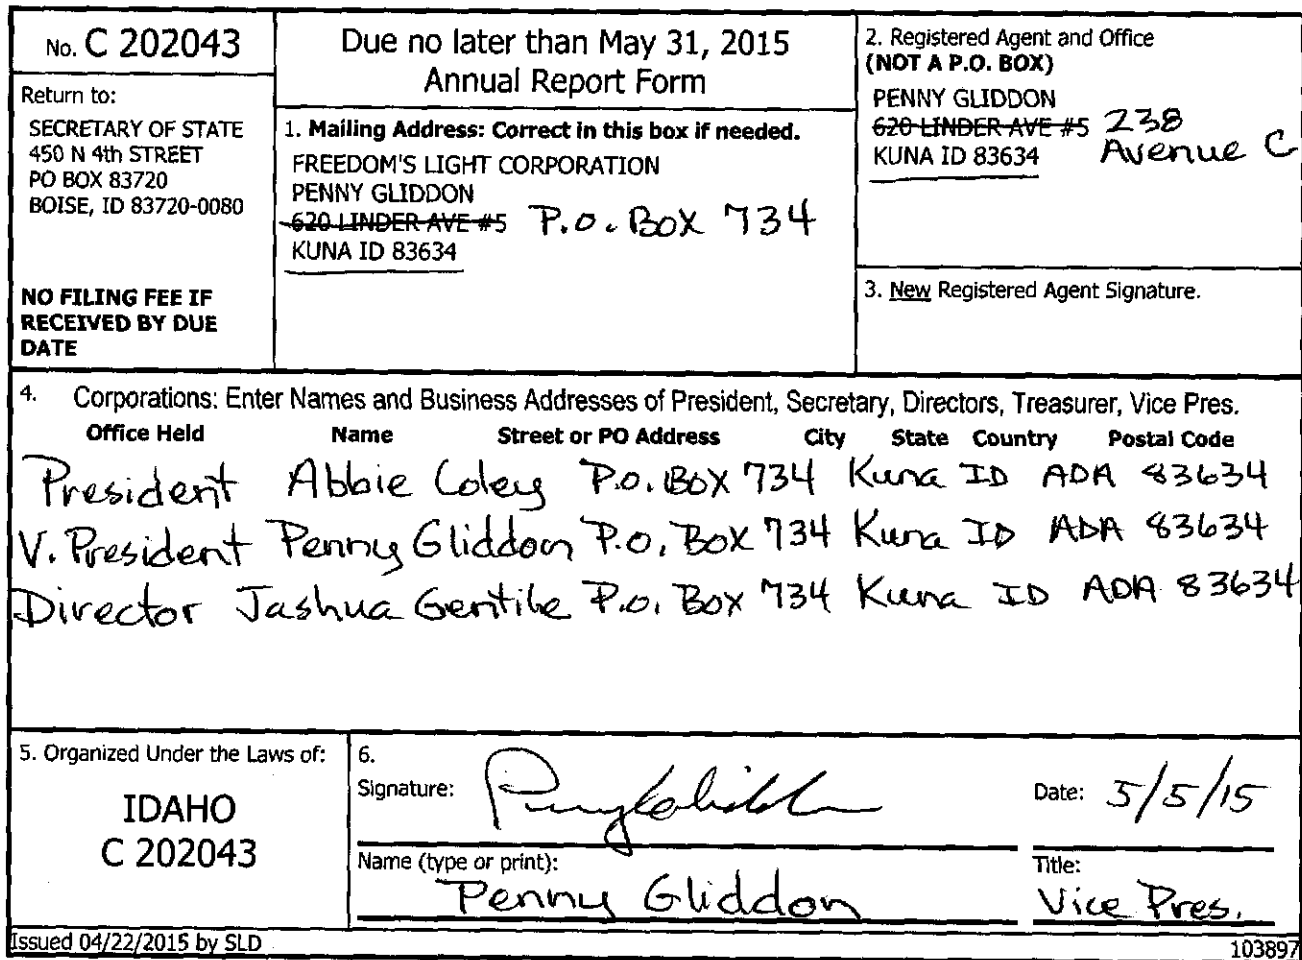 No. C 202043
Return to:
SECRETARY OF STATE
450 N 4th STREET
PO BOX 83720
BOISE, ID 83720-0080
NO FILING FEE IF
RECEIVED BY DUE
DATE
Due no later than May 31, 2015
Annual Report Form
1. Mailing Address: Correct in this box if needed.
FREEDOM'S LIGHT CORPORATION
PENNY GLIDDON
620 LINDER AVE #5 P.O. BOX 734
KUNA ID 83634
2. Registered Agent and Office
(NOT A P.O. BOX)
PENNY GLIDDON
620 LINDER AVE #5 238
KUNA ID 83634 Avenue C
3. New Registered Agent Signature.
4. Corporations: Enter Names and Business Addresses of President, Secretary, Directors, Treasurer, Vice Pres.
Office Held Name Street or PO Address City State Country Postal Code
President Abbie Coley P.O. BOX 734 Kuna ID ADA 83634
V. President Penny Gliddon P.O. Box 734 Kuna ID ADA 83634
Director Jashua Gentile P.O. Box 734 Kuna ID ADA 83634
5. Organized Under the Laws of:
IDAHO
C 202043
6.
Signature: Date: 5/5/15
Name (type or print): Title:
Penny Gliddon Vice Pres.
Issued 04/22/2015 by SLD 103897